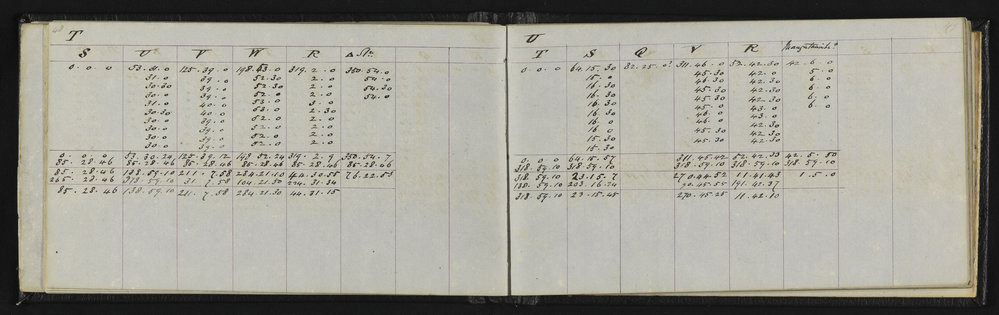 T
S U V W R Δ Stn.
0. 0. 0 53. 31. 0 125. 39. 0 148. 53. 0 319. 2. 0 350. 54. 0
31. 0 39. 0 52. 30 2. 0 54. 0
30. 30 39. 0 52. 30 2. 0 54. 30
30. 0 39. 0 52. 0 2. 0 54. 0
31. 0 40. 0 53. 0 3. 0
30. 30 40. 0 53. 0 2. 30
30. 0 39. 0 52. 0 2. 0
30. 0 39. 0 52. 0 2. 0
30. 0 39. 0 52. 0 2. 0
30. 0 39. 0 52. 0 2. 0
0. 0. 0 53. 30. 24 125. 39. 12 148. 52. 24 319. 2. 9 350. 54. 7
85. 28. 46 85. 28. 46 85. 28. 46 85. 28. 46 85. 28. 46 85. 28. 46
85. 28. 46 138. 59. 10 211. 7. 58 234. 21. 10 44. 30. 55 76. 22. 53
265. 28. 46 318. 59. 10 31. 7. 58 104. 21. 30 224. 31. 34
85. 28. 46 138. 59. 10 211. 7. 58 284. 21. 30 44. 31. 15
U
T S Q V R
0. 0. 0 64. 15. 30 82. 25. 0? 311. 46. 0 52. 42. 30 42. 6. 0
15. 0 45. 30 42. 0 5. 0
16. 30 46. 30 42. 30 6. 0
16. 30 45. 30 42. 30 6. 0
16. 30 45. 30 42. 30 6. 0
16. 30 45. 0 43. 0 6. 0
16. 0 46. 0 43. 0
16. 0 46. 0 42. 30
15. 30 45. 30 42. 30
15. 30 45. 30 42. 30
0. 0. 0 64. 15. 57 311. 45. 42 52. 42. 33 42. 5. 50
318. 59. 10 318. 59. 10 318. 59. 10 318. 59. 10 318. 59. 10
318. 59. 10 23. 15. 7 270. 44. 52 11. 41. 43 1. 5. 0
138. 59. 10 203. 16. 24 90. 45. 58 191. 42. 37
318. 59. 10 23. 15. 45 270. 45. 25 11. 42. 10